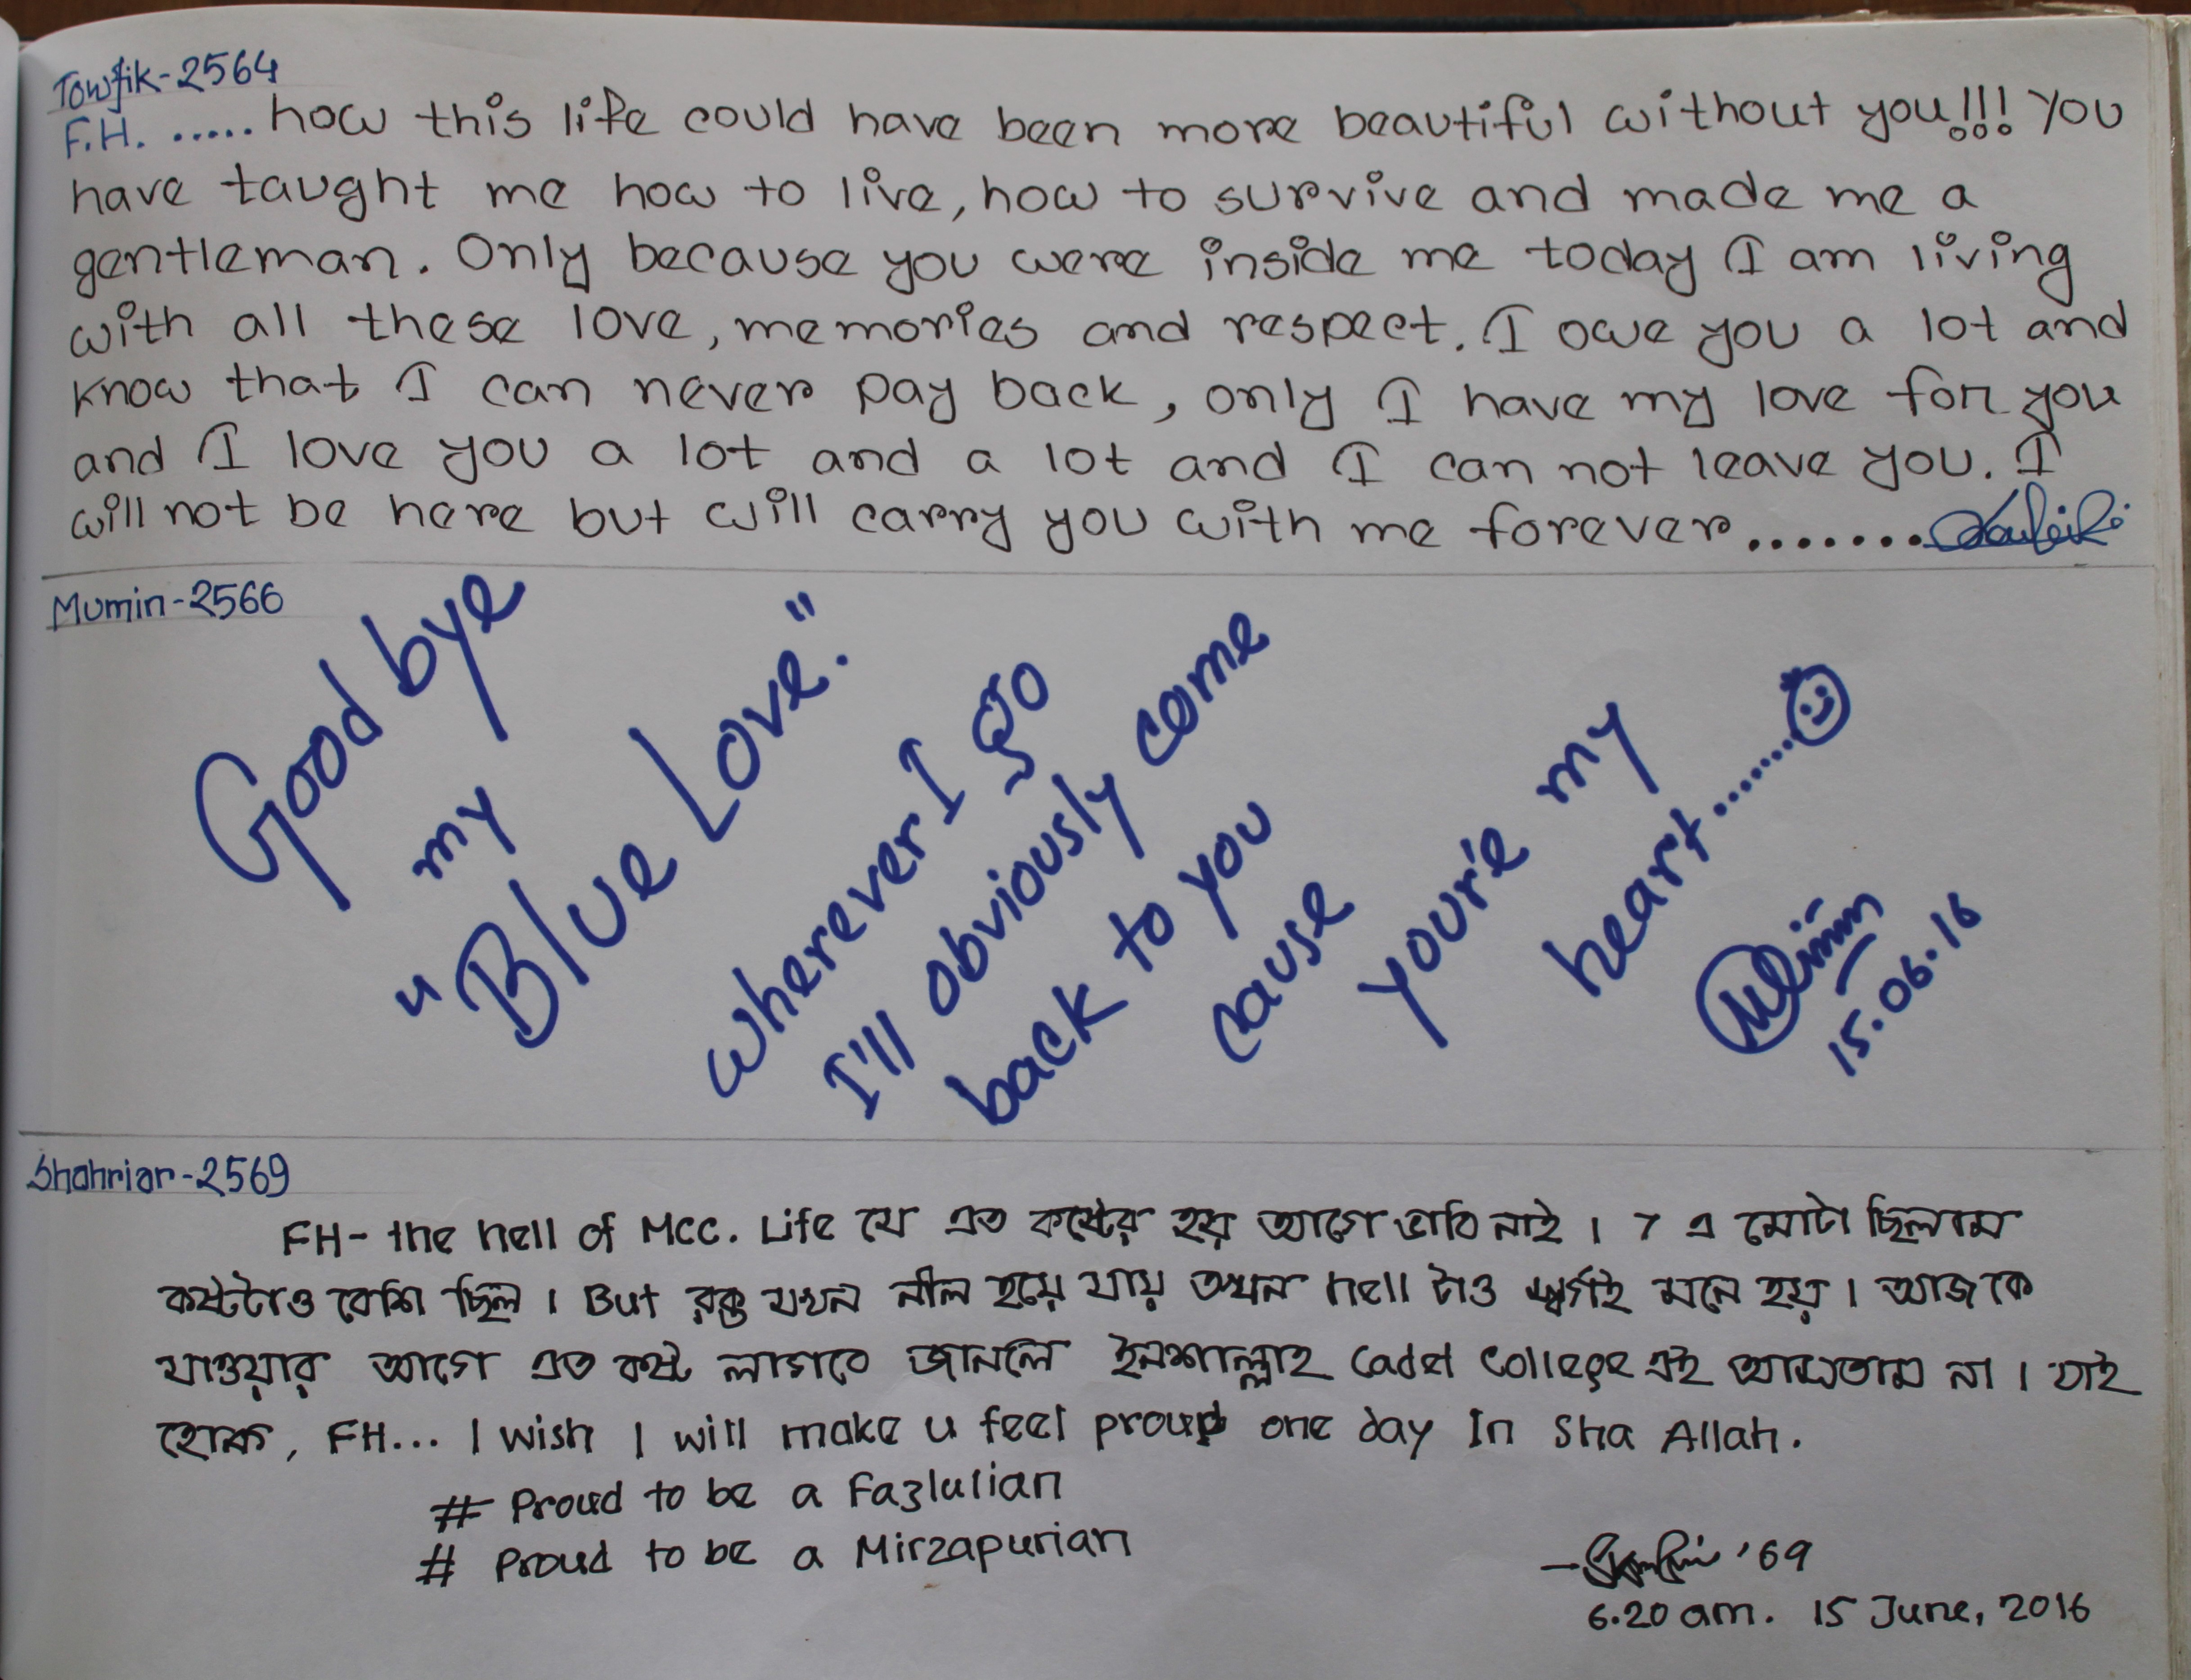 Towfik-2564
F.H. ...... how this life could have been more beautiful without you!!! You
have taught me how to live, how to survive and made me a
gentleman. Only because you were inside me today I am living
with all these love, memories and respect. I owe you a lot and
know that I can never pay back, only I have my love for you
and I love you a lot and a lot and I can not leave you. I
will not be here but will carry you with me forever........
Mumin-2566
Good bye
my
"Blue Love."
wherever I go
I'll obviously come
back to you
cause
your'e my
heart.......
15.06.16
Shahriar-2569
FH- the hell of MCC. Life যে এত কষ্টের হয় আগে ভাবি নাই। 7 এ মোটা ছিলাম
কষ্টটাও বেশি ছিল। But রক্ত যখন নীল হয়ে যায় তখন hell টাও স্বর্গই মনে হয়। আজকে
যাওয়ার আগে এত কষ্ট লাগবে জানলে ইনশাল্লাহ Cadet College এই আসতাম না। যাই
হোক, FH... I wish I will make u feel proud one day In Sha Allah.
# Proud to be a Fazlulian
# Proud to be a Mirzapurian
'69
6.20 am. 15 June, 2016